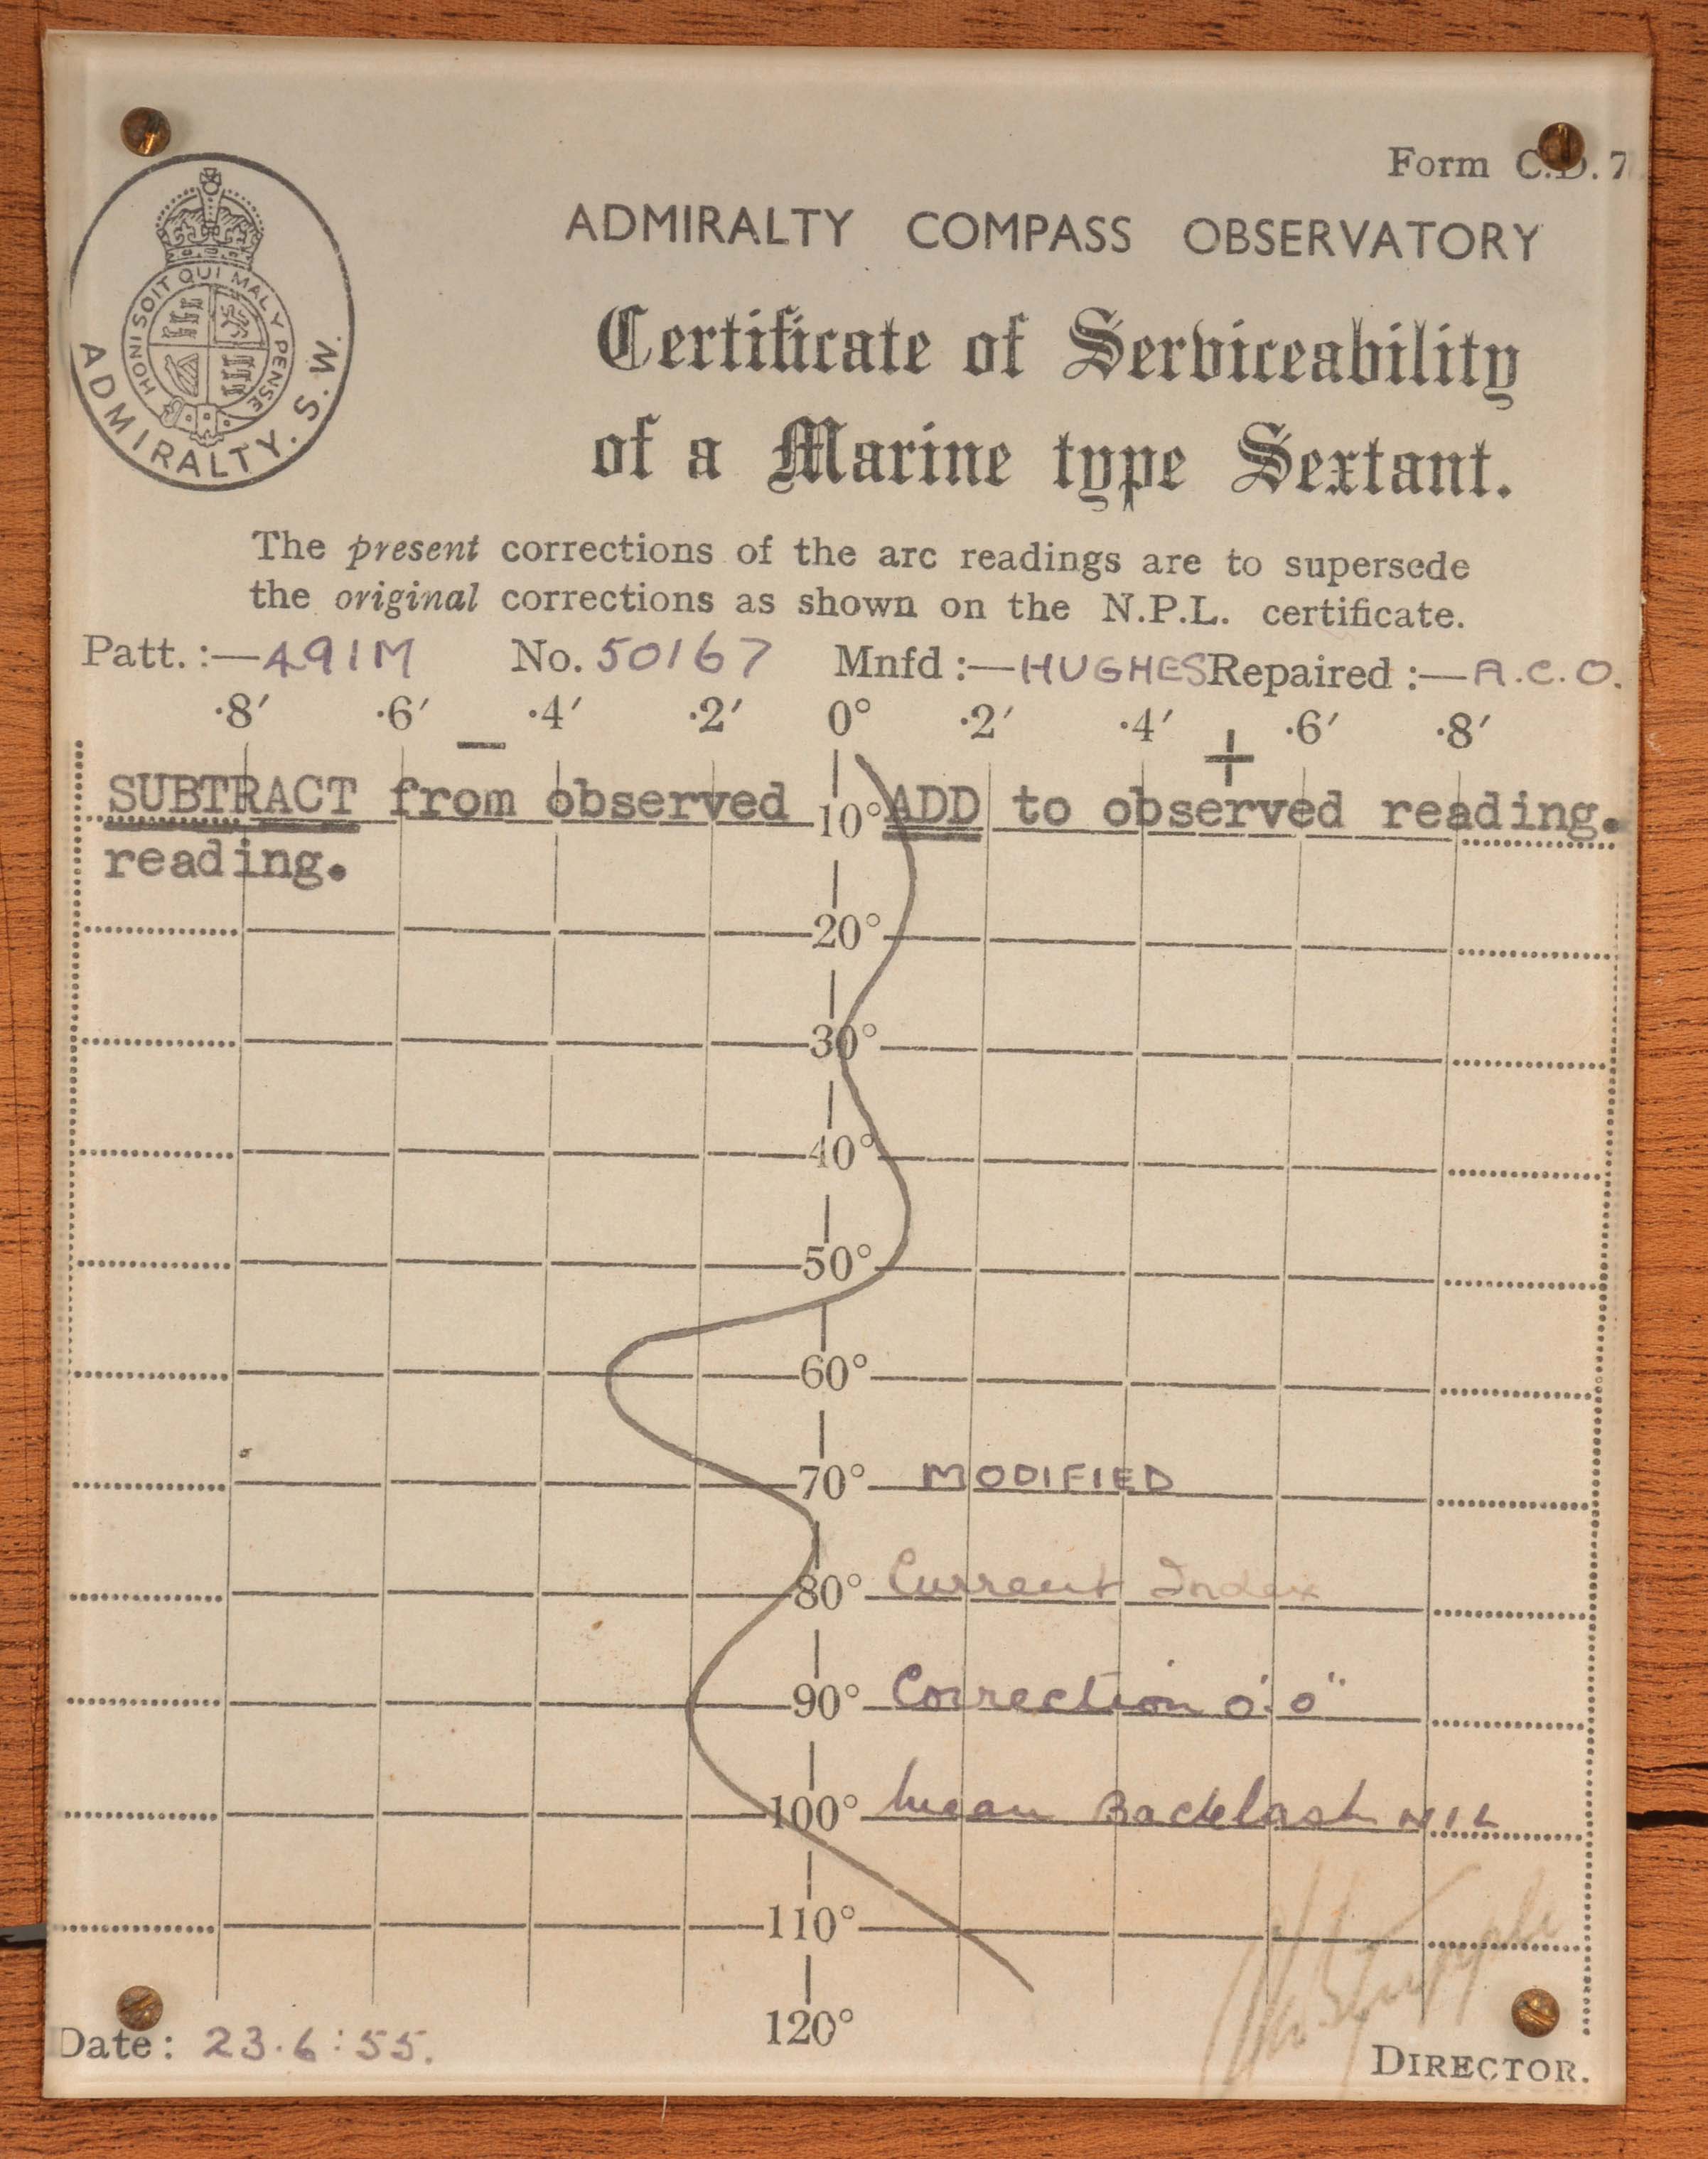 Form C.D. 7
HONI SOIT QUI MAL Y PENSE
ADMIRALTY. S.W.
ADMIRALTY COMPASS OBSERVATORY
Certificate of Serviceability
of a Marine type Sextant.
The present corrections of the arc readings are to supersede
the original corrections as shown on the N.P.L. certificate.
Patt. :—491M No. 50167 Mnfd :—HUGHES Repaired :—A.C.O.
·8′ ·6′ ·4′ ·2′ 0° ·2′ ·4′ ·6′ ·8′
− +
SUBTRACT from observed 10° ADD to observed reading.
reading.
20°
30°
40°
50°
60°
70° MODIFIED
80° Current Index
90° Correction 0′·0″
100° Mean Backlash NIL
110°
120°
Date: 23.6:55.
DIRECTOR.